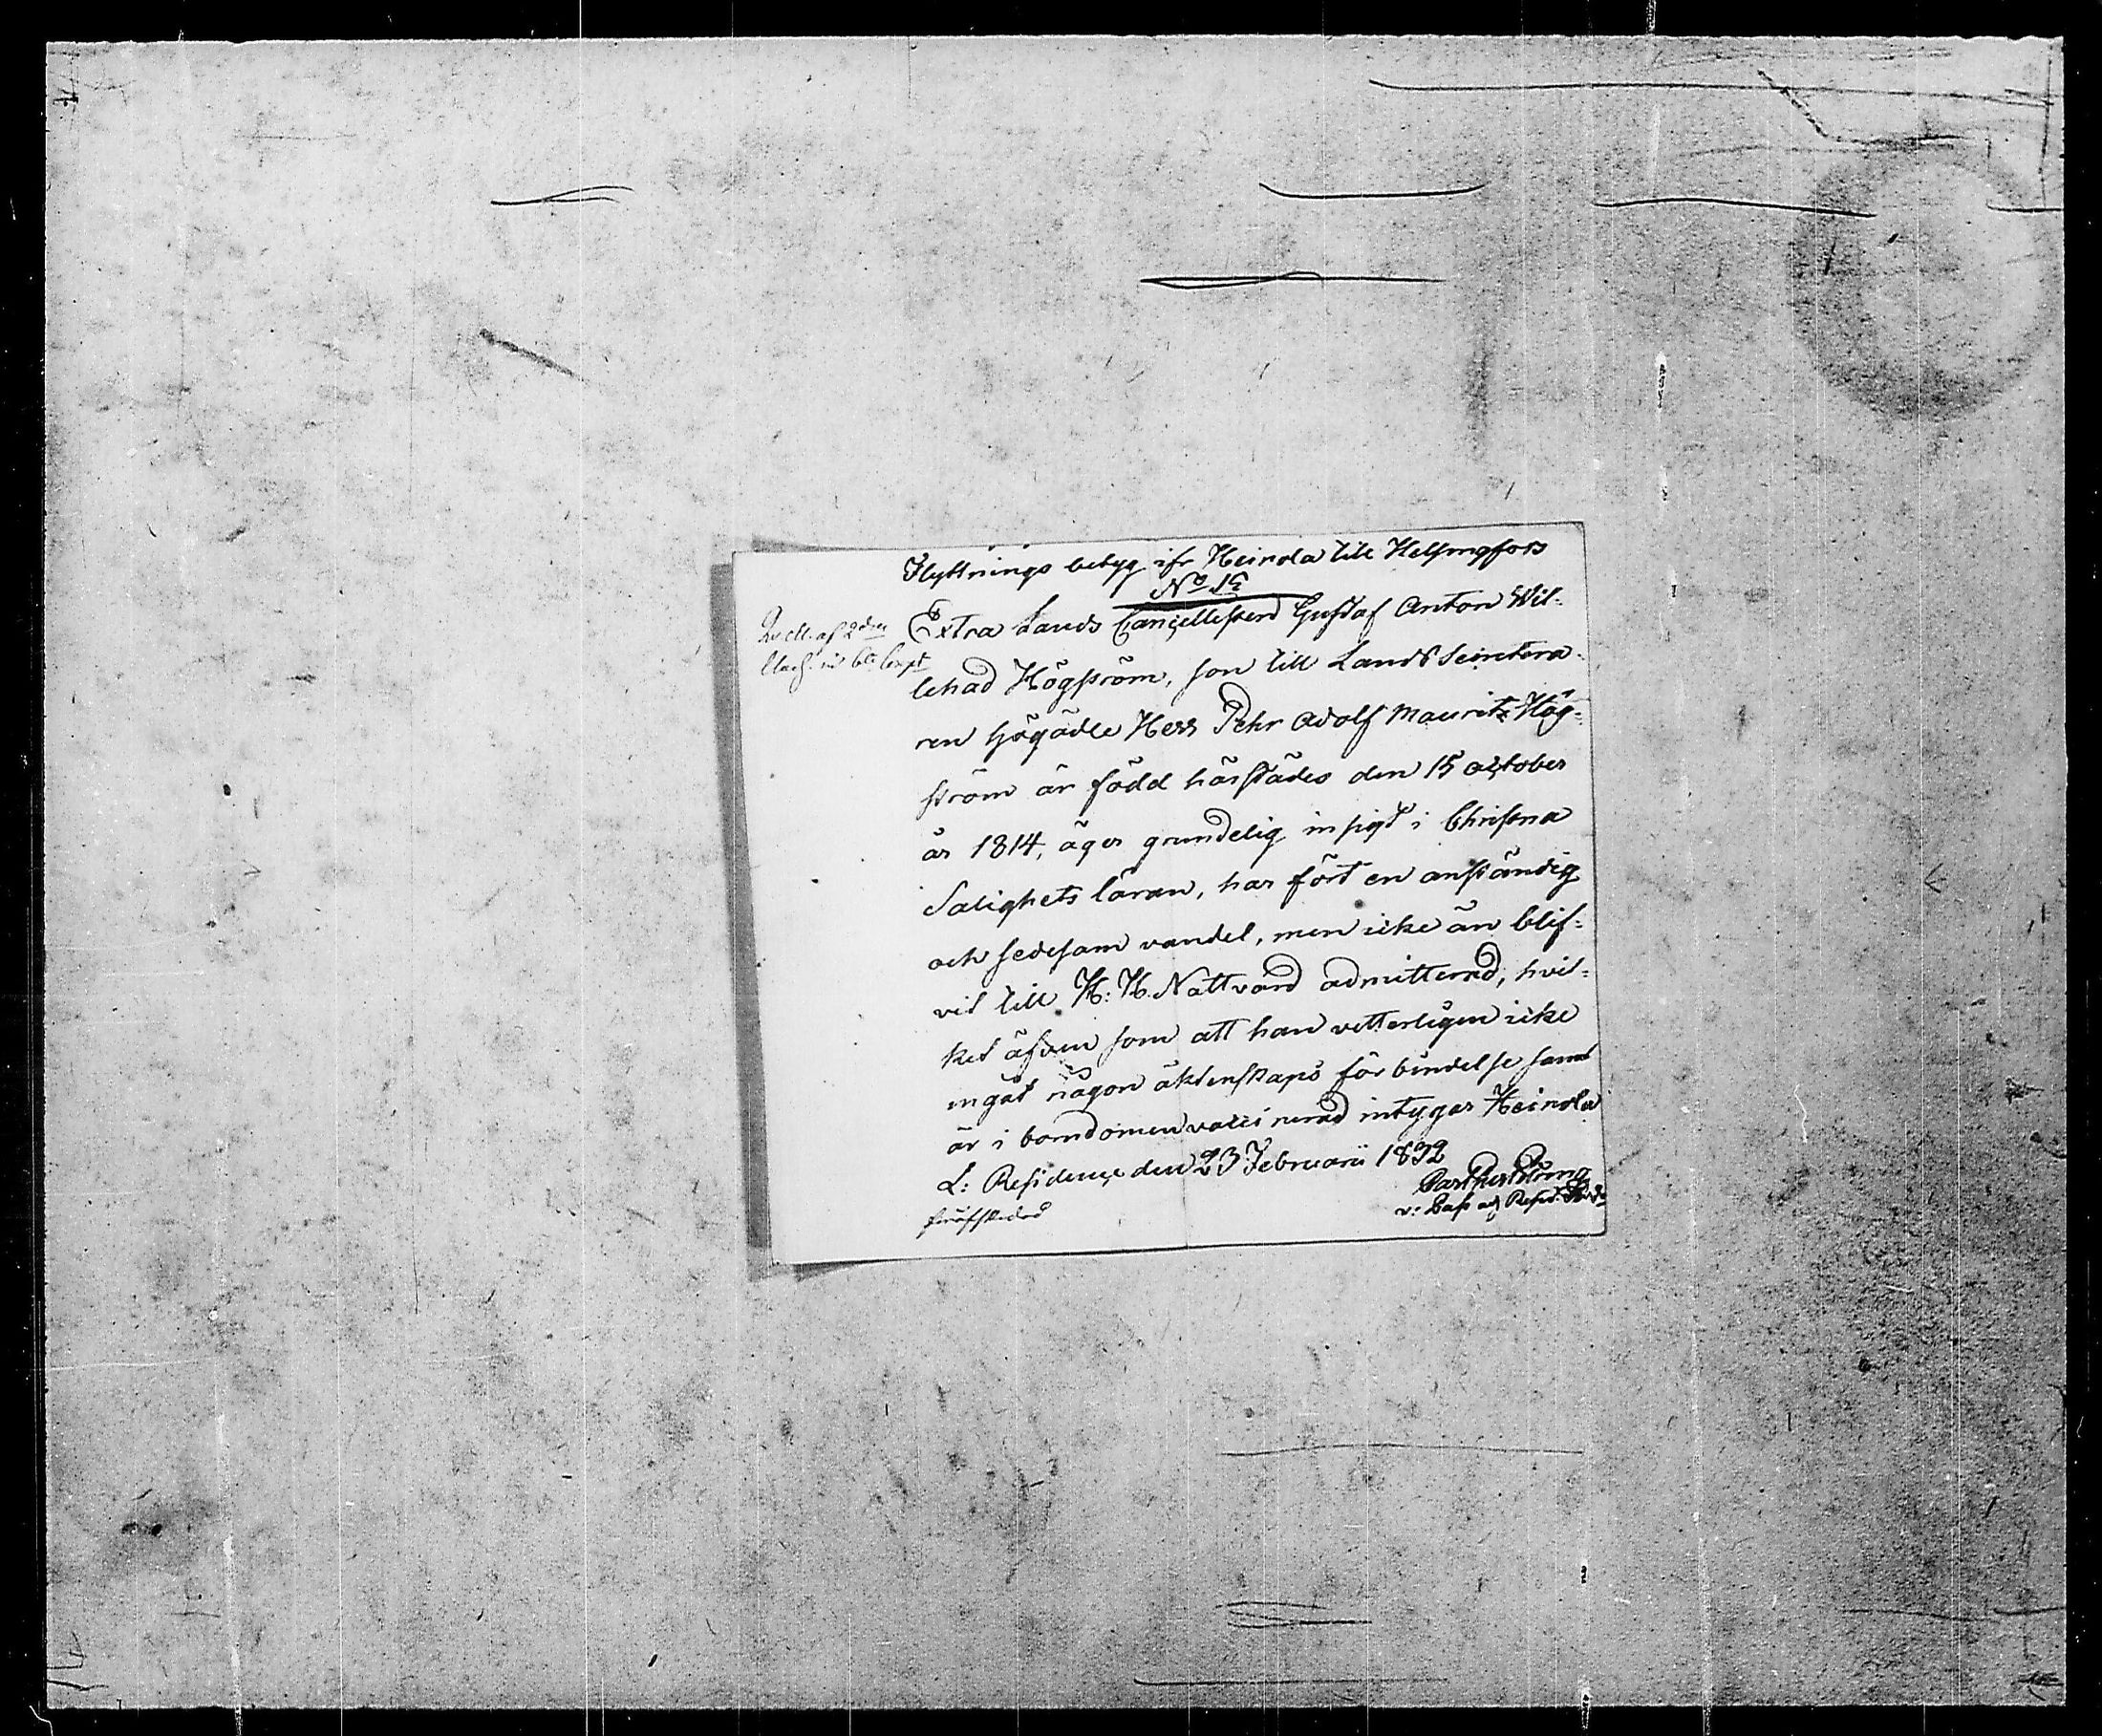 Flyttnings betyg ifr Heinola till Helsingfors
No 15
Extra Lands Cancellisten Gustaf Anton Wil-
lehad Högström, son till Lands Secretera-
ren Högädle Herr Pehr Adolf Mauritz Hög-
ström är född härstädes den 15 october
år 1814, äger grundelig insigt i Christna
Salighets läran, har fört en anständig
och sedesam vandel, men icke än blif-
vit till H: H. Nattvard admitterad, hvil-
ket äfven som att han vetterligen icke
ingåt någon äktenskaps förbindelse samt
är i barndomen vaccinerad intygar Heinola
L: Residence den 23 Februarii 1832
v: Past